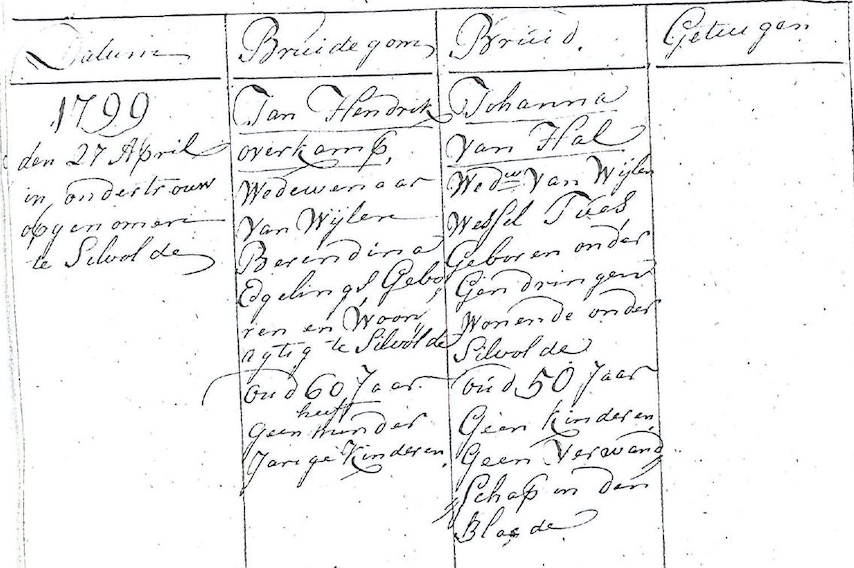 Datum
1799
den 27 April
in ondertrouw
opgenomen
te Silvolde
Bruidegom
Jan Hendrik
overkamp,
Wedewenaar
Van Wijlen
Berendina
Edgelings Gebo
ren en Woon
agtig te Silvolde
oud 60 Jaar
heeft
Geen minder
Jarige Kinderen
Bruid.
Johanna
van Hal
Wedw Van Wijlen
Wessel Tues
Geboren onder
Gendringen
Wonende onder
Silvolde
oud 50 Jaar
Geen Kinderen
Geen Verwand
Schap in den
Bloede
Getugen